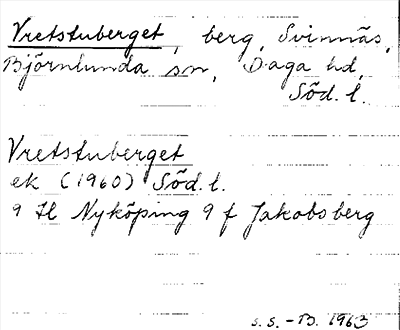 Vretstuberget, berg, Svinnäs,
Björnlunda sn, Daga hd,
Söd. l.
Vretstuberget
ek (1960) Söd. l.
9 H Nyköping 9 f Jakobsberg
S.S.-B. 1963